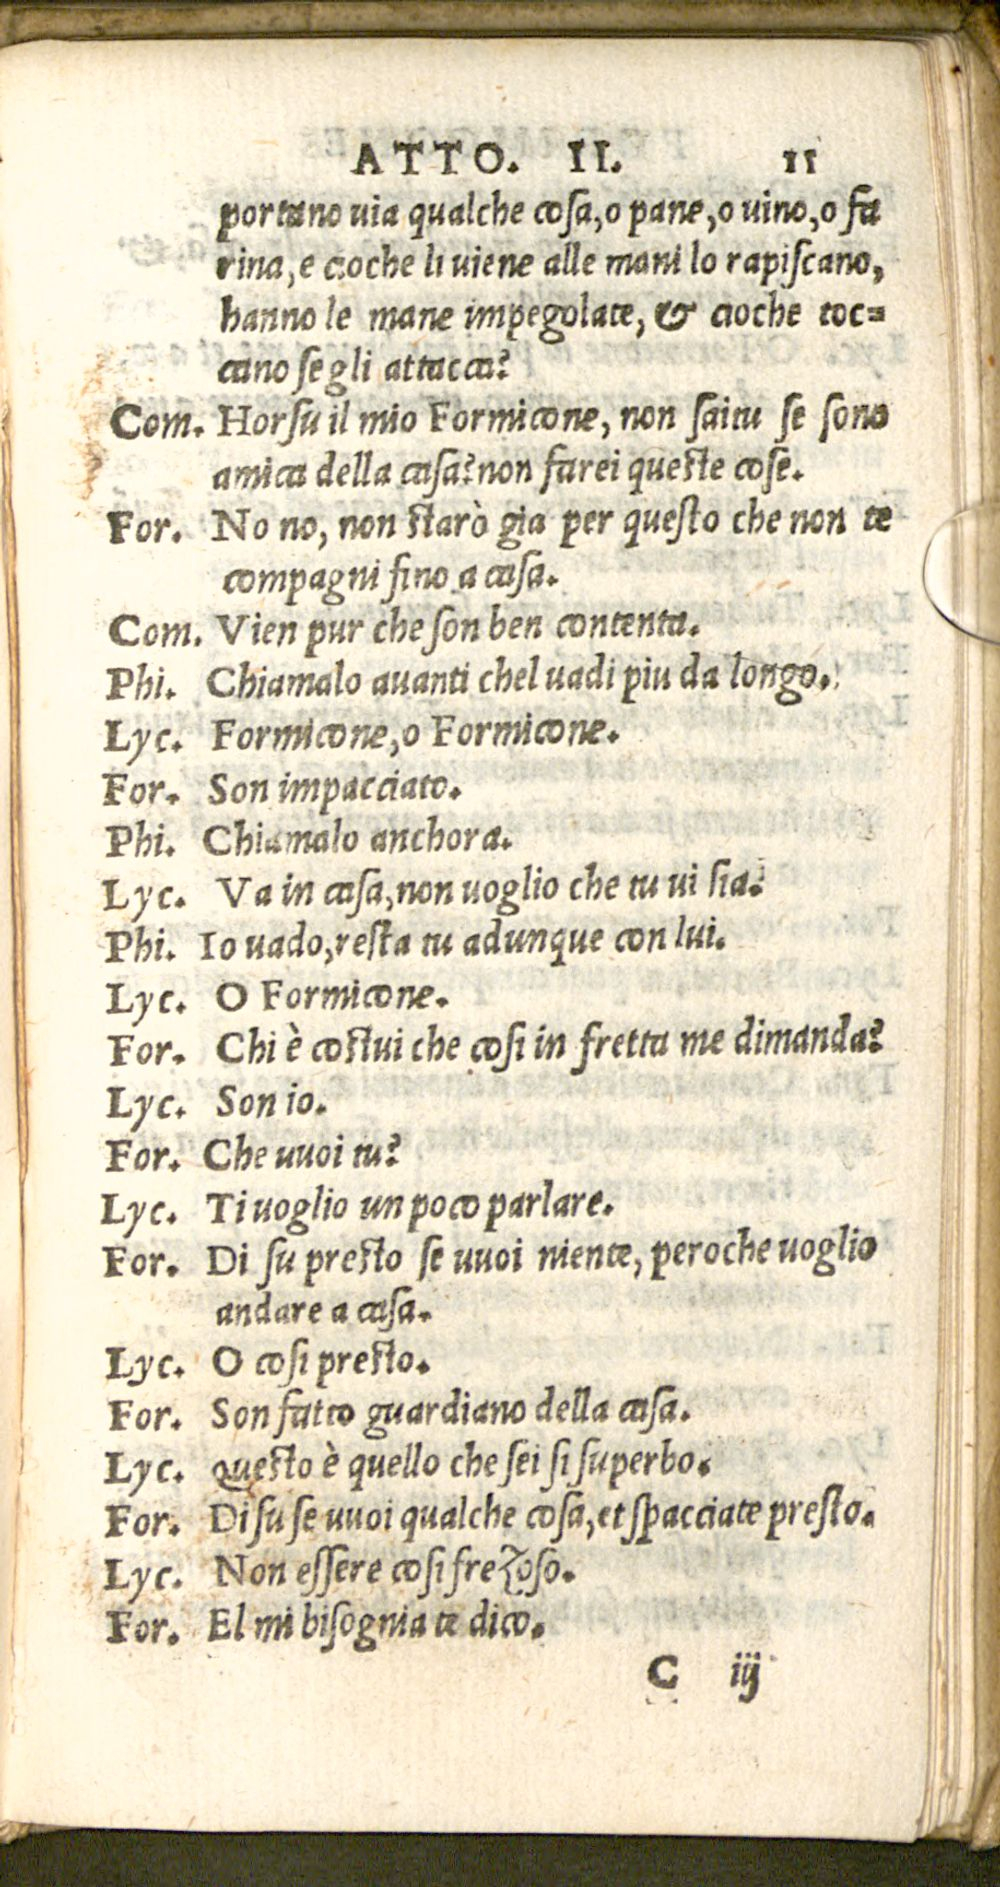 ATTO. II. 11
portano uia qualche coſa, o pane, o uino, o fa
rina, e cioche li uiene alle mani lo rapiſcano,
hanno le mane impegolate, & cioche toc=
cano ſe gli attacca?
Com. Horſu il mio Formicone, non ſaitu ſe ſono
amica della caſa? non farei queſte coſe.
For. No no, non ſtarò gia per queſto che non te
compagni fino a caſa.
Com. Vien pur che ſon ben contenta.
Phi. Chiamalo auanti chel uadi piu da longo.
Lyc. Formicone, o Formicone.
For. Son impacciato.
Phi. Chiamalo anchora.
Lyc. Va in caſa, non uoglio che tu ui ſia.
Phi. Io uado, reſta tu adunque con lui.
Lyc. O Formicone.
For. Chi è coſtui che coſi in fretta me dimanda?
Lyc. Son io.
For. Che uuoi tu?
Lyc. Ti uoglio un poco parlare.
For. Di ſu preſto ſe uuoi niente, peroche uoglio
andare a caſa.
Lyc. O coſi preſto.
For. Son fatto guardiano della caſa.
Lyc. queſto è quello che ſei ſi ſuperbo.
For. Di ſu ſe uuoi qualche coſa, et ſpacciate preſto.
Lyc. Non eſſere coſi frezoſo.
For. El mi biſognia te dico.
C iij